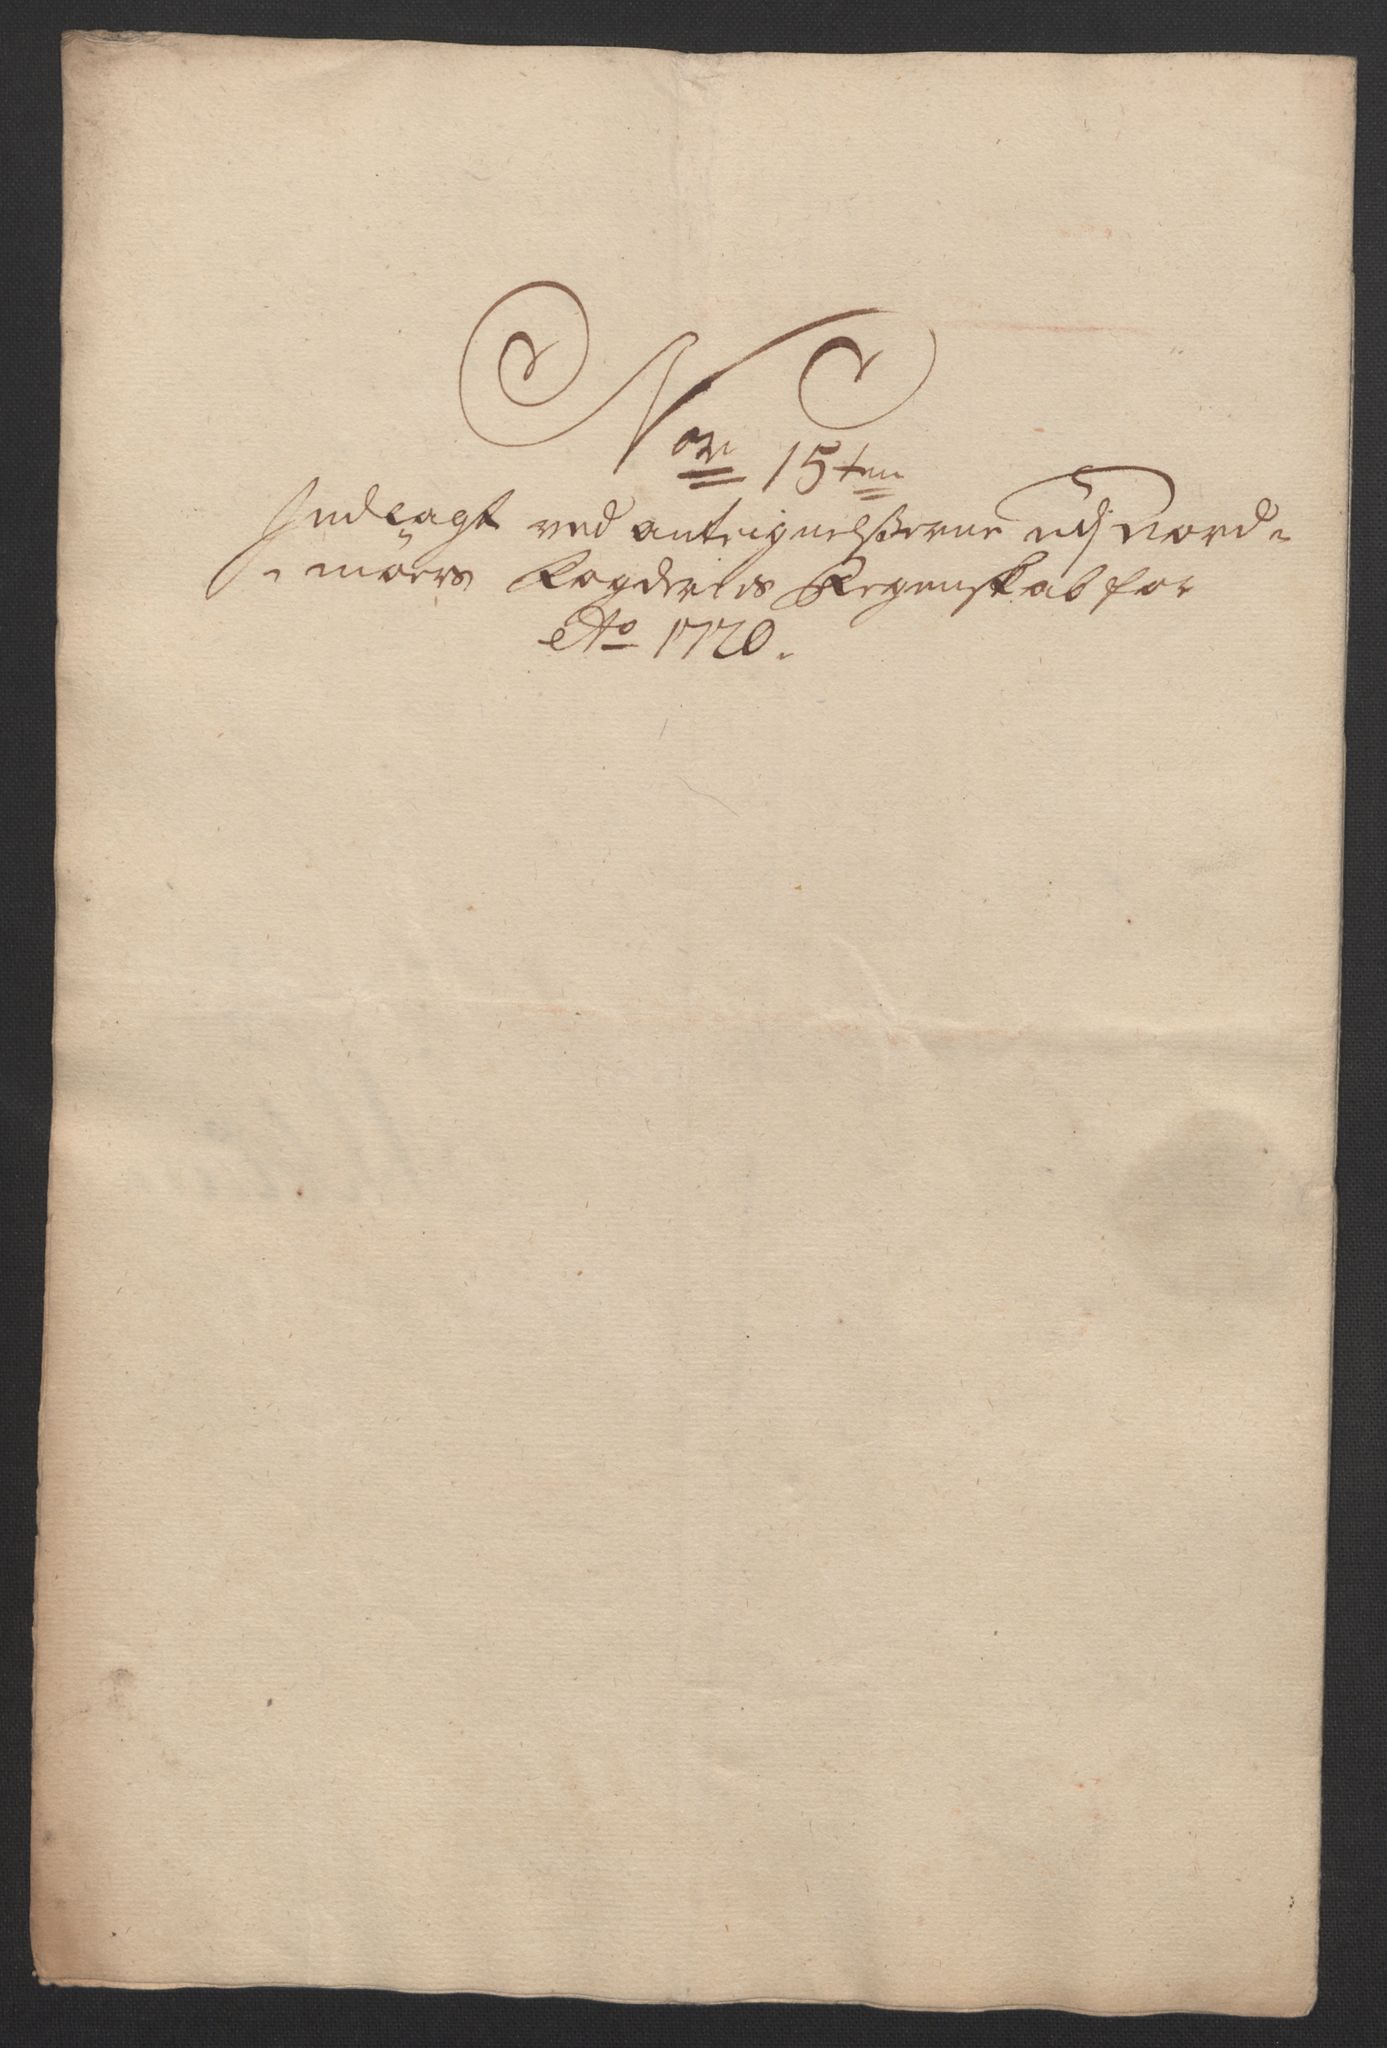 Nor 15ten
Indlagt ved anteignelsserne udj Nord-
-møers Fogderies Regenskab for
Ao 1720.